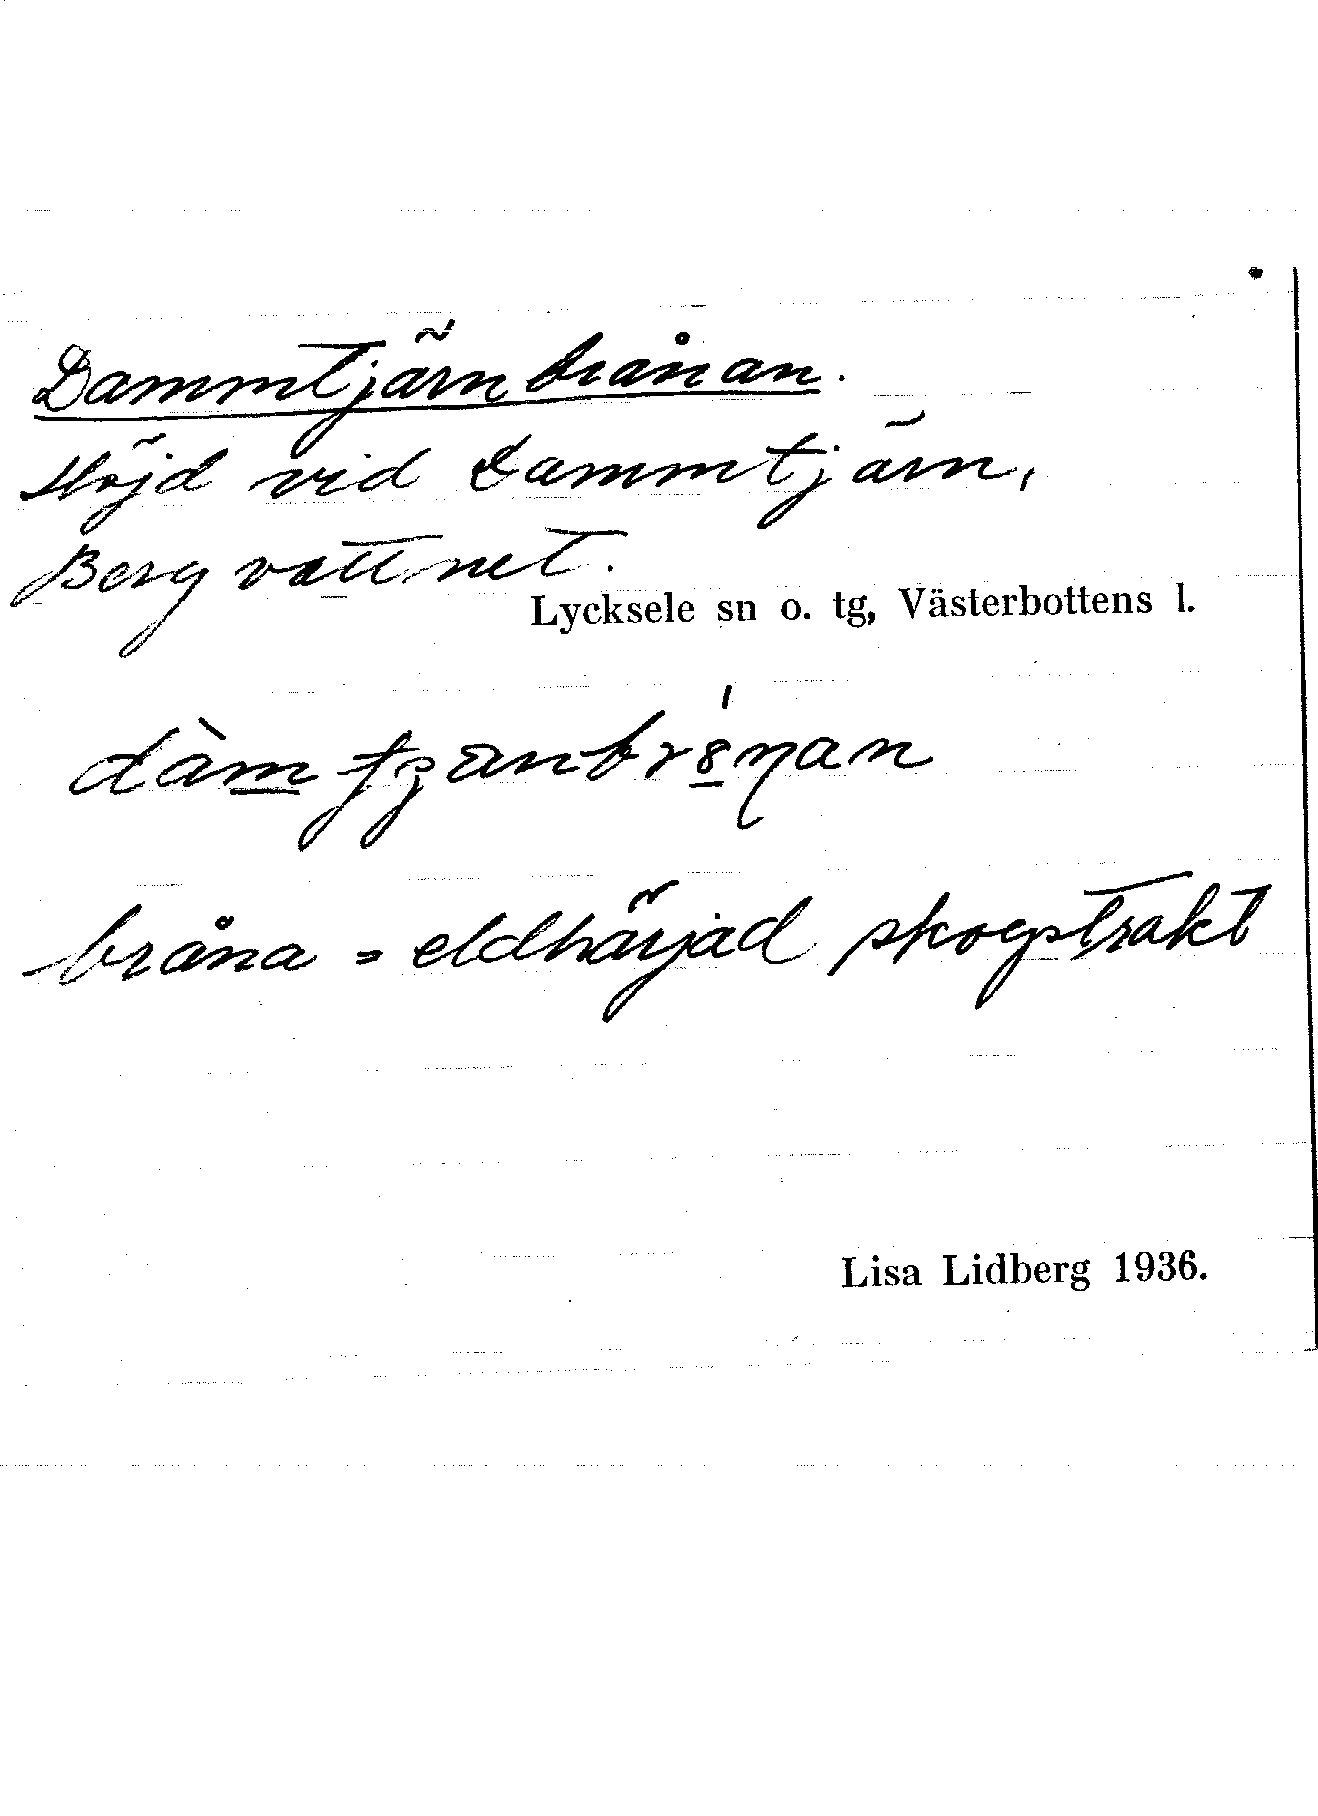 Dammtjärnbrånan.
Höjd vid Dammtjärn,
Bergvattnet.
Lycksele sn o. tg, Västerbottens l.
bråna = eldhärjad skogstrakt
Lisa Lidberg 1936.